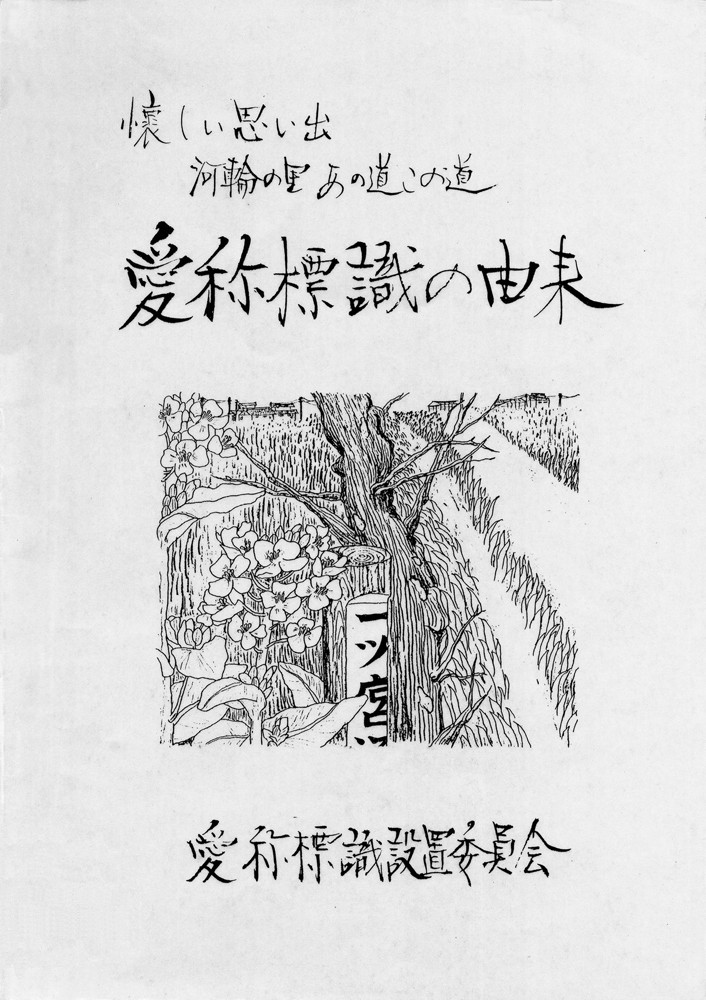 懐しい思い出
河輪の里 あの道この道
愛称標識の由来
一ッ宮
愛称標識設置委員会